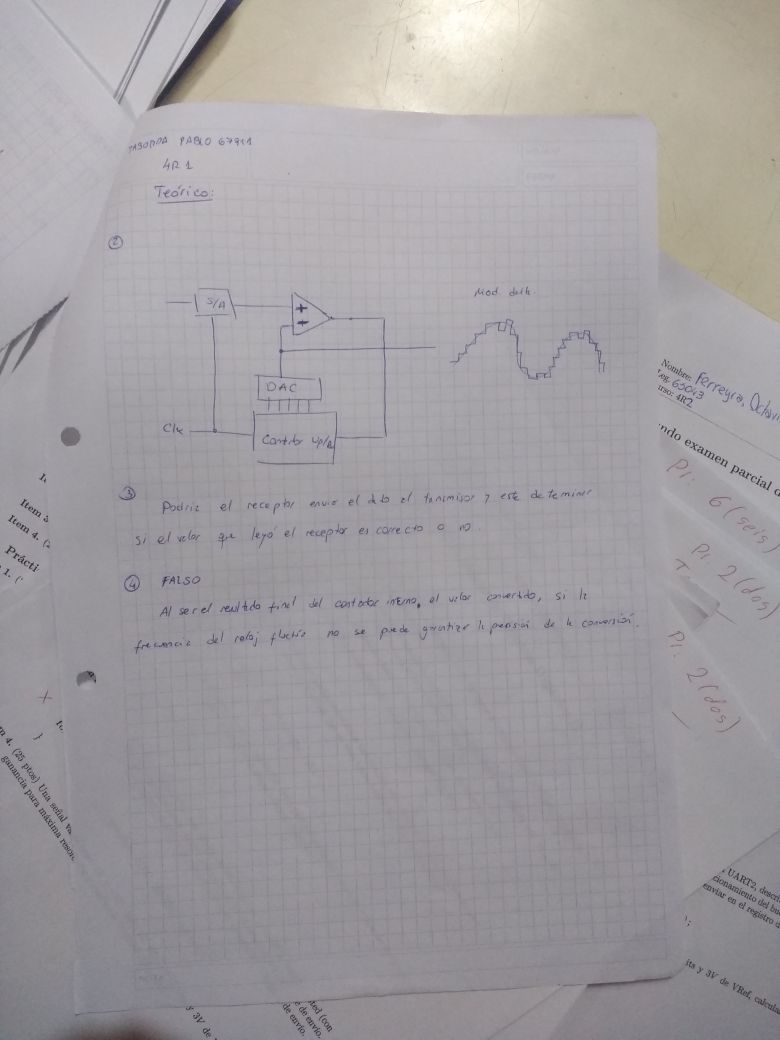 TABORDA PABLO 67911
4R1
Teórico:
②
S/H
+
-
DAC
Clk
Contador up/d
Mod. delta
③ Podria el receptor enviar el dato al transmisor y este determinar
si el valor que leyó el receptor es correcto o no.
④ FALSO
Al ser el resultado final del contador interno, el valor convertido, si la
frecuencia del reloj fluctúa no se puede garantizar la precisión de la conversión.
Nombre: Ferreyra, Octavi
Leg. 65043
urso: 4R2
ndo examen parcial d
P1: 6 (seis)
P1 2 (dos)
P1: 2 (dos)
Item 4. (2
Prácti
1. (
m 4. (25 ptos) Una señal va
ganancia para máxima reson
, UART2, descri
cionamiento del bu
enviar en el registro d
its y 3V de VRef, calcula
y 3V de
ted (con
de envío.
de envío.